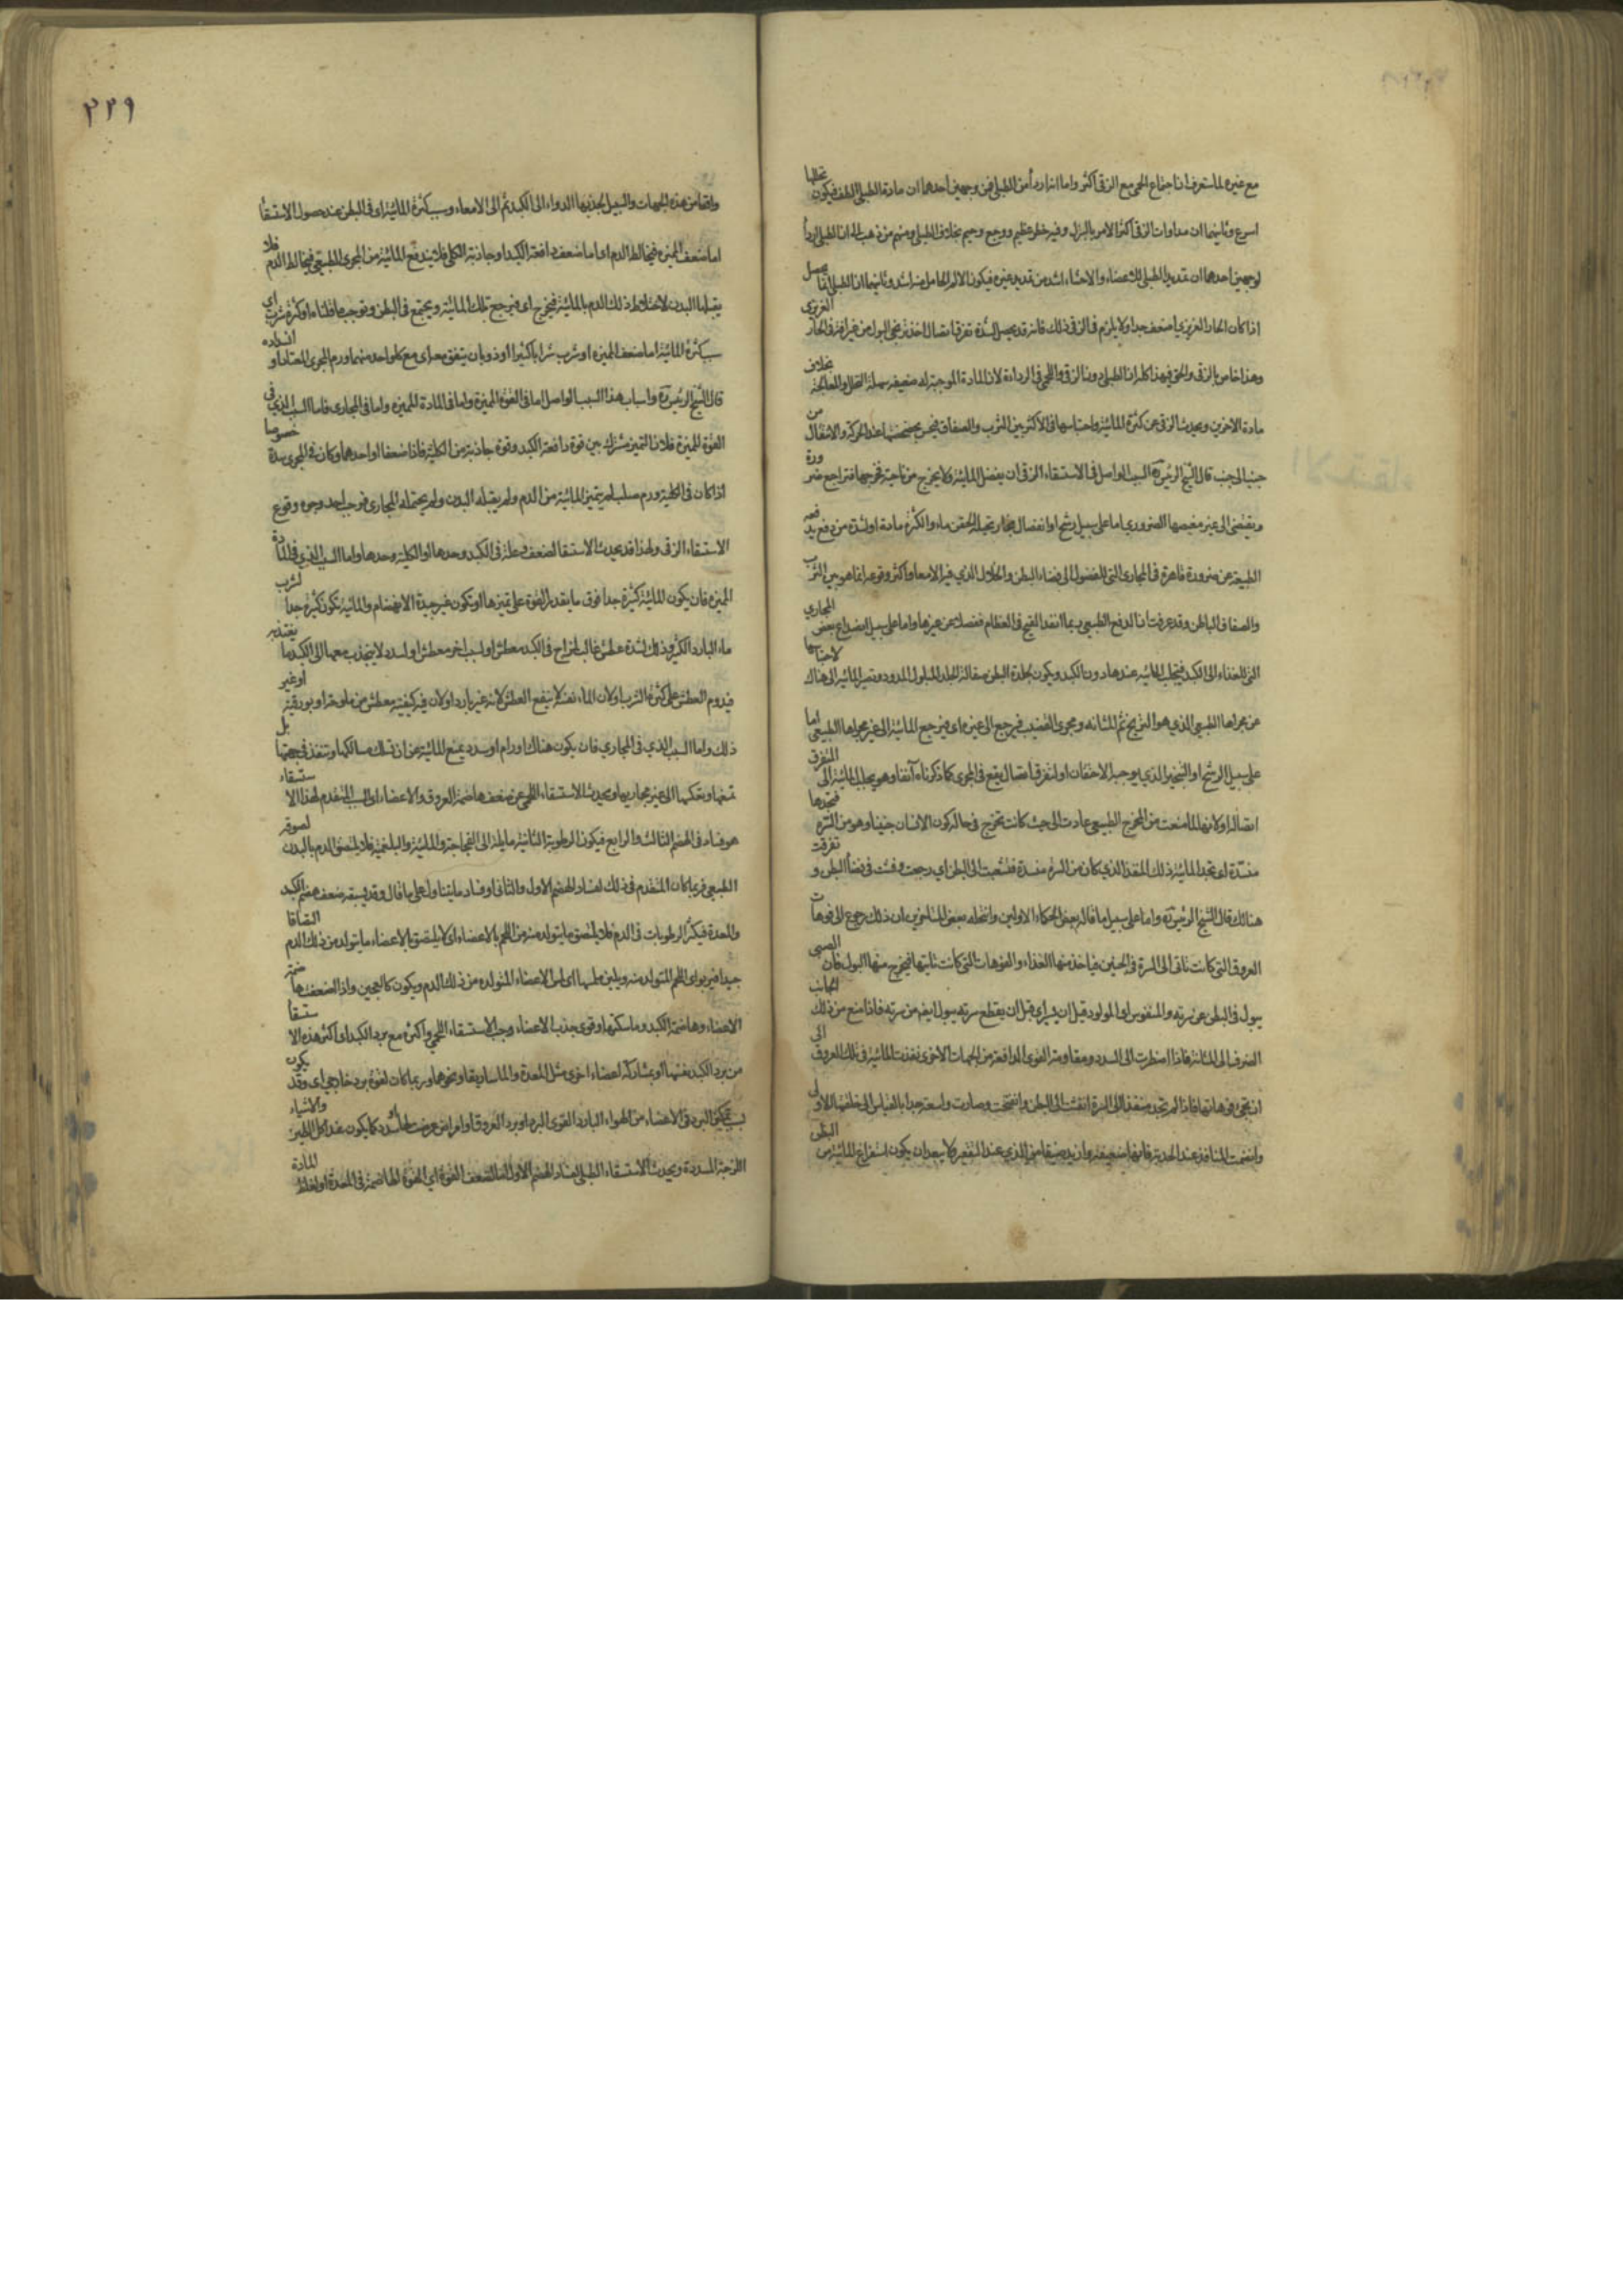 مع غيره لما ستعرف ان اجتماع الحمى مع الزقى اكثر واما انه اردأ من الطبلى فمن وجهين احدهما ان مادة الطبلى الطف فيكون تحللها
اسرع وثانيهما ان مداوات الزقى اكثر الامر بالبزل وفيه خطر عظيم ووجع وحيم بخلاف الطبلى ومنهم من ذهب الى ان الطبلى اردأ
لوجهين احدهما ان تمديد الطبلى للاعضاء والاحشاء اشد من تمديد غيره فيكون الالم الحاصل منه اشد وثانيهما ان الطبلى انما يحصل
اذا كان الحار الغريزى اضعف جدا ولا يلزم فى الزقى ذلك فانه قد يحصل لشدة تفرق اتصال اخذ مجرى البول من غير افة فى الحار الغريزى
وهذا خاص بالزقى والحق فى هذا كله ان الطبلى دون الزقى واللحمى فى الرداءة لان المادة الموجبة له ضعيفة سهلة التحلل والمعالجة بخلاف
مادة الاخرين ويحدث الزقى عن كثرة المائية واحتباسها فى الاكثر بين الثرب والصفاق فيحس بخضخضتها عند الحركة والانتقال من
جنب الى جنب قال الشيخ الرئيس السبب الواصل فى الاستسقاء الزقى ان يفضل المائية ولا يخرج من ناحية مخرجها فتراجع ضرورة
ويفيض الى غير مغيضها الضرورى اما على سبيل رشح او انفصال بخار تحيله الحقن ماء والكثرة مادة او لشدة من دفع يدفعه
الطبيعة عن ضرورة قاهرة فى المجارى التى للفضول الى فضاء البطن والخلال الذى فيه الامعاء واكثر وقوعه انما هو بين الثرب
والصفاق الباطن وقد عرفت ان الدفع الطبيعى ربما انفذ القيح فى العظام فضلا عن غيرها واما على سبيل انصداع بعض المجارى
التى للغذاء الى الكبد فيتحلب المائية عندها دون الكبد ويكون لجلدة البطن صقالة الجلد المبلول الممدود وتصير المائية الى هناك لاحتباسها
عن مجراها الطبيعى الذى هو البربخ ثم المثانة ومجرى القضيب فيرجع الى غيره اى فيرجع المائية الى غير مجراها الطبيعى اما
على سبيل الرشح او التبخير الذى يوجبه الاحتقان او لتفرق اتصال يقع فى المجرى كما ذكرناه آنفا وهو يجلب المائية الى المتفرق
اتصاله او لانها لما منعت من المخرج الطبيعى عادت الى حيث كانت تخرج فى حالة كون الانسان جنينا وهو من السرة فتجدها
منسدة اى تجد المائية ذلك المنفذ الذى كان من السرة منسدة فتشعبت الى البطن اى رجعت وفشت فى فضاء البطن وتفرقت
هنالك قال الشيخ الرئيس واما على سبيل ما قاله بعض الحكماء الاولين وانتحله بعض المتاخرين ان ذلك رجوع الى فوهات
العروق التى كانت تاتى الى السرة فى الجنين فياخذ منها الغذاء والفوهات التى كانت تاتيها فيخرج منها البول فان الصبى
يبول فى البطن عن سرته والمنفوس اى المولود قبل ان يسر اى قبل ان يقطع سرته يبول ايضا من سرته فاذا منع من ذلك الجانب
انصرف الى المثانة فاذا اضطرت الى السدد ومقاومة القوى الدافعة من الجهات الاخرى نفذت المائية فى تلك العروق الى
ان تجئ فوهاتها فاذا لم تجد منفذا الى السرة انفشت الى البطن وانفتحت وصارت واسعة جدا بالقياس الى خلقتها الاولى
وانضمت المنافذ عند الحدبة فانها ضعيفة وازيد ضيقا من الذى عند التقعير ولا يبعد ان يكون استفراغ المائية من البطن
٢٢٩
واقعا من هذه الجهات والسبيل يجذبها الدواء الى الكبد ثم الى الامعاء وسبب كثرة المائية اى فى البطن عند حصول الاستسقاء
اما ضعف المميزة فيخالط الدم اى اما ضعف دافعة الكبد او جاذبة الكلى فلا يندفع المائية من المجرى الطبيعى فيخالط الدم فلا
يقبلها البدن لاختلاط ذلك الدم بالمائية فيخرج اى فيرجع تلك المائية ويجتمع فى البطن وتوجب ما قلناه او كثرة شرب اى
سبب كثرة المائية اما ضعف المميزة او شرب شرابا كثيرا او ذوبان يتفق معه اى مع كل واحد منهما ورم المجرى المعتاد او انسداده
قال الشيخ الرئيس واسباب هذا السبب الواصل اما فى القوة المميزة واما فى المادة المميزة واما فى المجارى فاما السبب الذى فى
القوة المميزة فلان التميز مشترك بين قوة دافعة الكبد وقوة جاذبة من الكلية فاذا ضعفا او احدهما وكان فى المجرى سدة خصوصا
اذا كان فى الكلية ورم صلب لم يتميز المائية من الدم ولم يقبله البدن ولم يحتمله المجارى فوجب احد وجوه وقوع
الاستسقاء الزقى ولهذا قد يحدث الاستسقا لضعف وعلة فى الكبد وحدها او الكلية وحدها واما السبب الذى فى المادة
المميزة فان يكون المائية كثيرة جدا فوق ما يقدر القوة على تميزها او تكون غير جيدة الانهضام والمائية تكون كثيرة جدا لشرب
ماء البارد الكثير وذلك لشدة عطش غالب لمزاج فى الكبد معطش او لسبب اخر معطش او لسدد لا ينجذب معها الى الكبد ما يعتد به
فيدوم العطش على كثرة الشرب او لان الماء نفسه لا ينفع العطش لانه غير بارد او لان فيه كيفية معطشة من ملوحة او بورقية او غير
ذلك واما السبب الذى فى المجارى فان يكون هناك اورام او سدد يمنع المائية عن ان تسلك مسالكها وتنفذ فى جهتها بل
تمنعها وتعكسها الى غير مجاريها ويحدث الاستسقاء اللحمى عن ضعف هاضمة العروق والاعضاء اى السبب المتقدم لهذا الاستسقاء
هو فساد فى الهضم الثالث والرابع فيكون الرطوبة الثانية مايلة الى الفجاجة والمائية والبلغمية فلا يلتصق الدم بالبدن لصوقه
الطبيعى فربما كان المتقدم فى ذلك لفساد الهضم الاول والثانى او فساد ما يتناول على ما قال وقد يسبقه ضعف هضم الكبد
والمعدة فيكثر الرطوبات فى الدم فلا يلتصق ما يتولد منه من اللحم بالاعضاء اى لا يلتصق بالاعضاء ما يتولد من ذلك الدم التصاقا
جيدا فيربو اى اللحم المتولد منه ويلين ملمسها اى لمس الاعضاء المتولده من ذلك الدم ويكون كالعجين واذا ضعفت هاضمة
الاعضاء وهاضمة الكبد وماسكتها وقوى جذب الاعضاء وجب الاستسقاء اللحمى واكثره مع برد الكبد اى اكثر هذه الاستسقا
من برد الكبد بنفسها او بمشاركة اعضاء اخرى مثل المعدة والماساريقا ونحوها وربما كان لقوة برد خارجى اى وقد يكون
بسبب تمكين البرد فى الاعضاء من الهواء البارد القوى البرد او برد العروق او امراض عرضت لها او سدد كما يكون عند اكل الطين والاشياء
اللزجة المسددة ويحدث الاستسقاء الطبلى لفساد الهضم الاول اما لضعف القوة اى القوة الهاضمة فى المعدة او لغلظ المادة